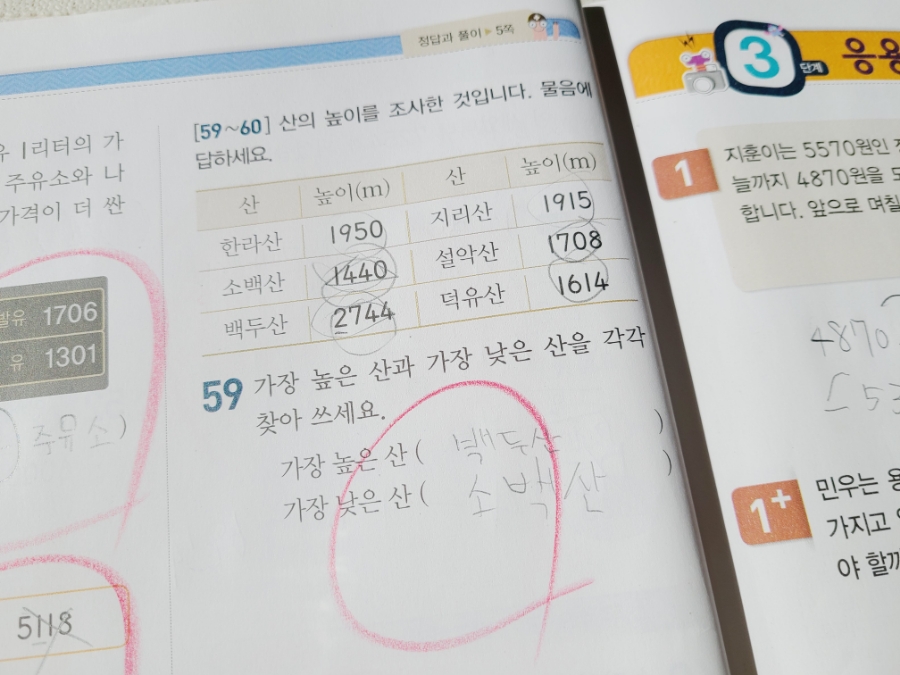 정답과 풀이 ▶ 5쪽
유 1리터의 가
주유소와 나
가격이 더 싼
발유 1706
유 1301
주유소)
5118
[59~60] 산의 높이를 조사한 것입니다. 물음에
답하세요.
산 높이(m) 산 높이(m)
한라산 1950 지리산 1915
소백산 1440 설악산 1708
백두산 2744 덕유산 1614
59 가장 높은 산과 가장 낮은 산을 각각
찾아 쓰세요.
가장 높은 산 ( 백두산 )
가장 낮은 산 ( 소백산 )
3 단계 응용
1 지훈이는 5570원인
늘까지 4870원을 모
합니다. 앞으로 며칠
4870
1+ 민우는 용
가지고
야 할까